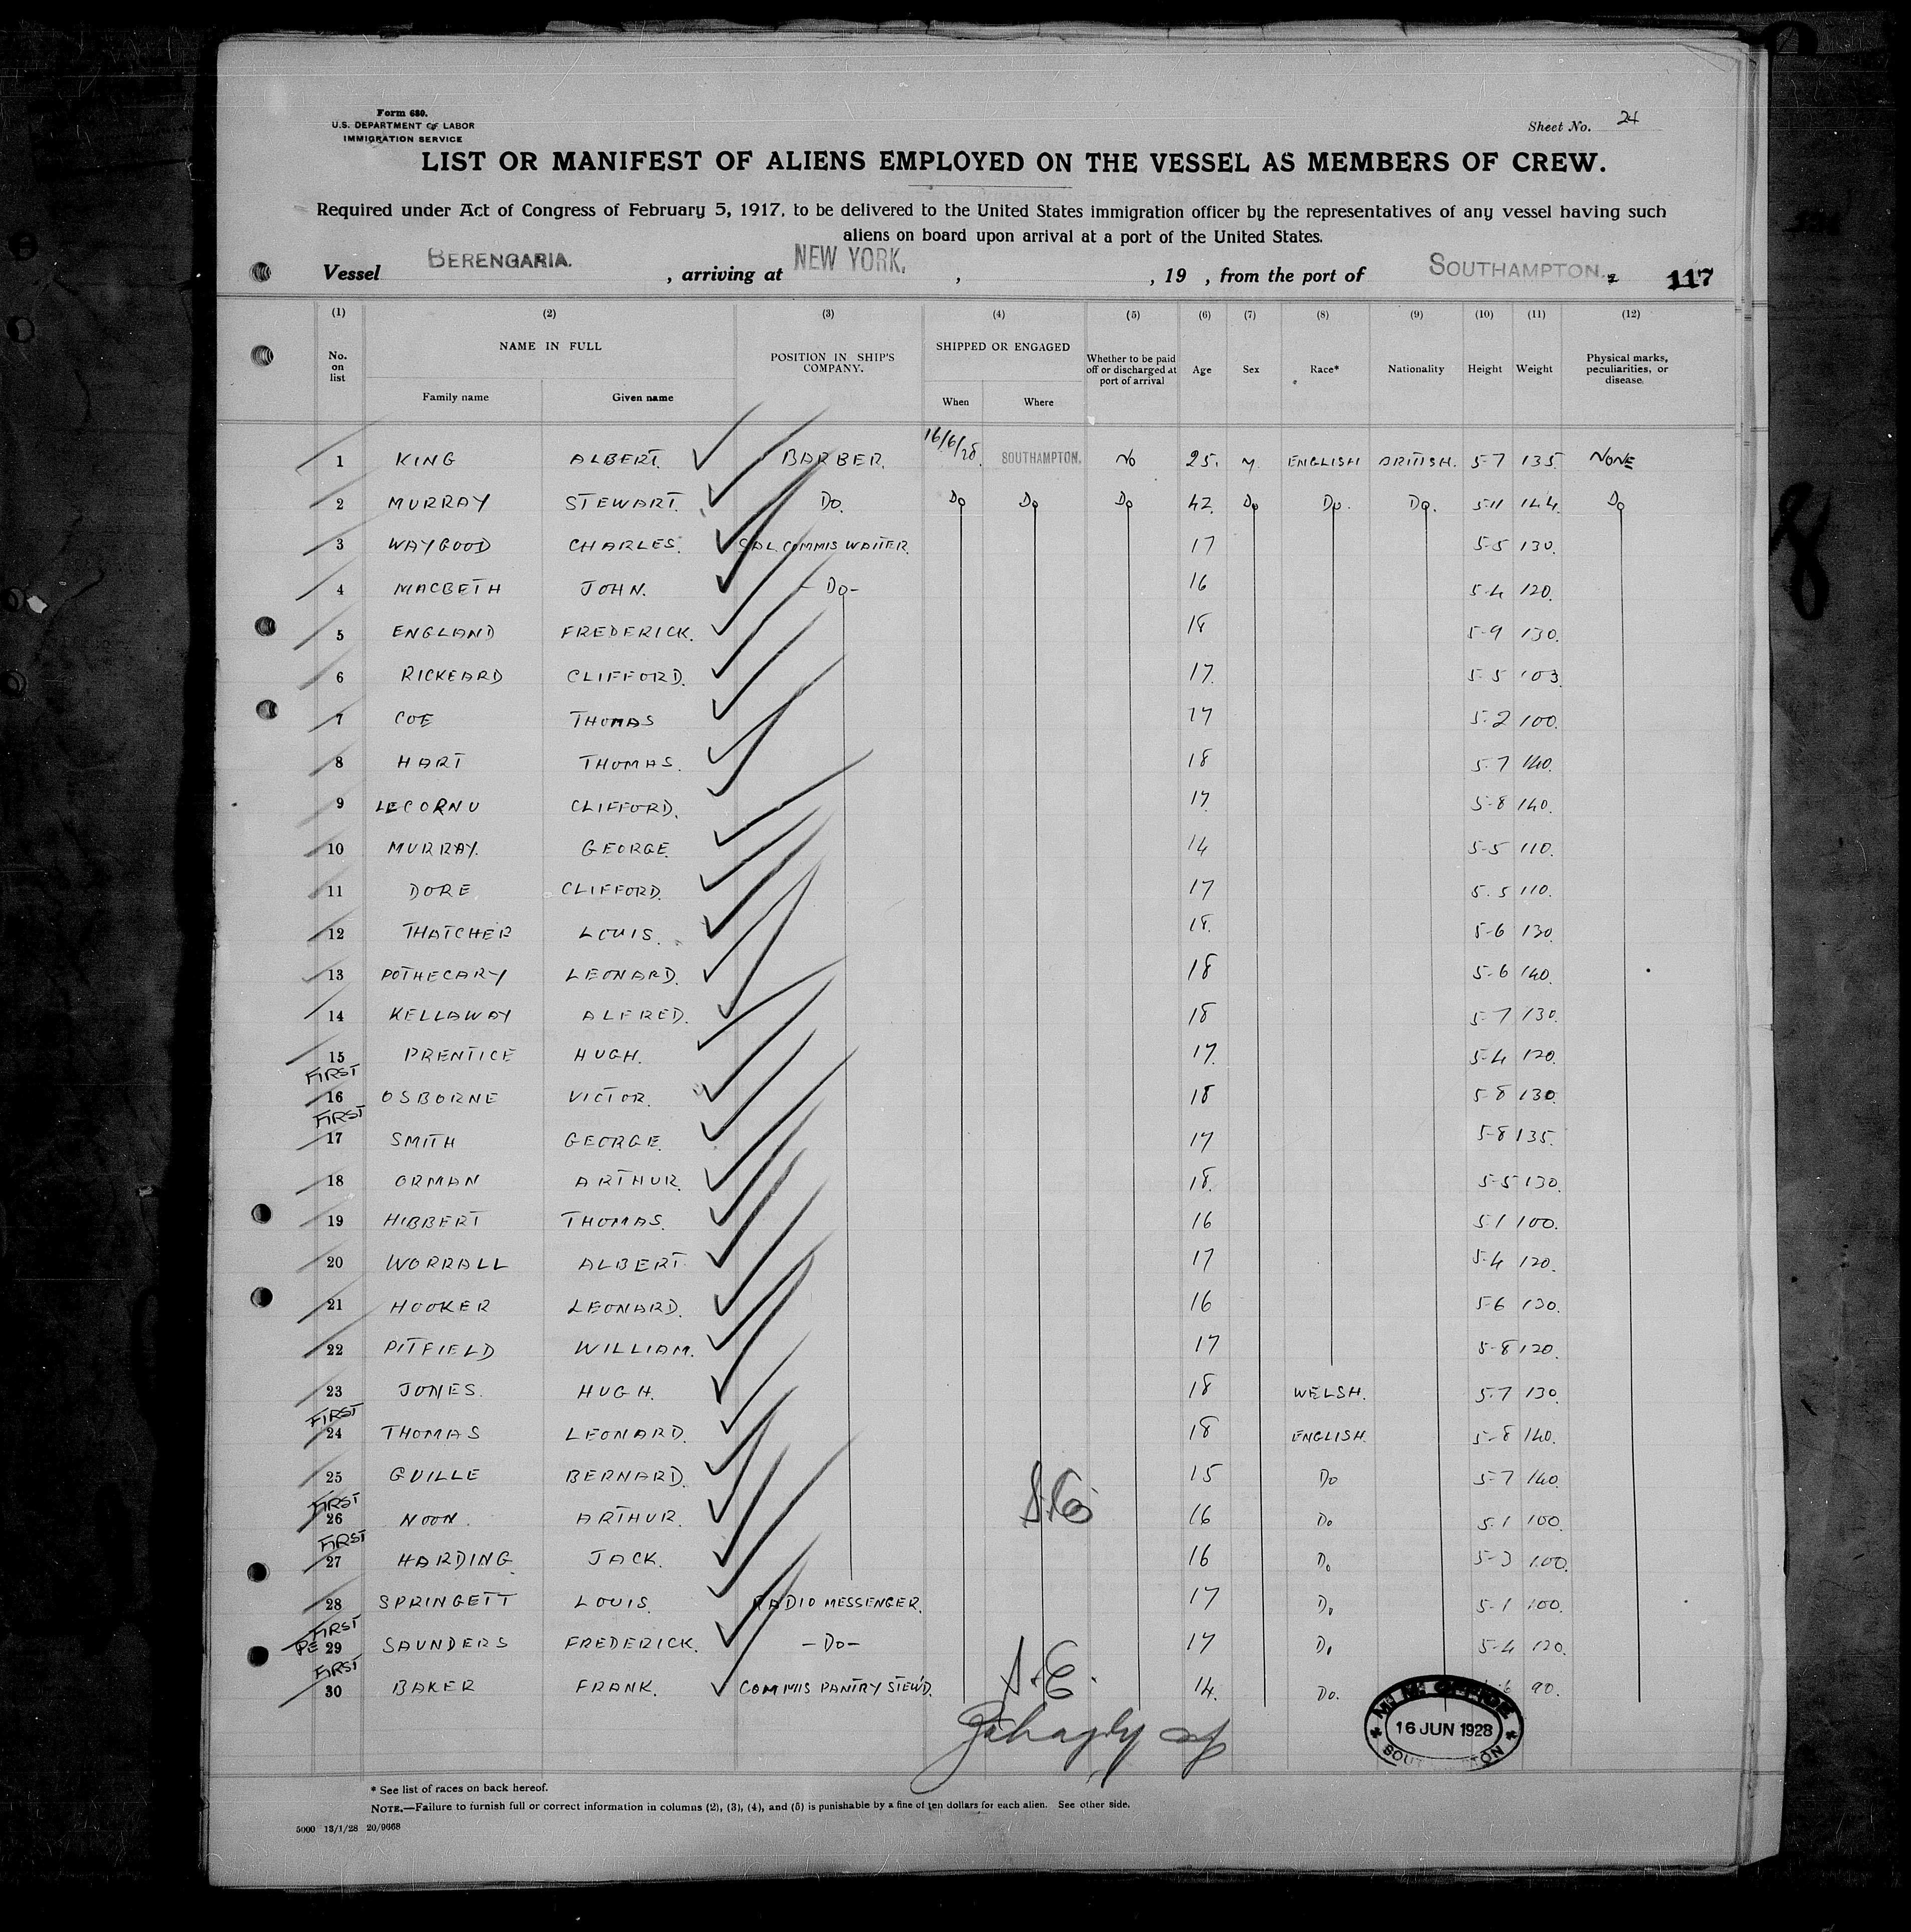 Form 680.
U.S. DEPARTMENT OF LABOR
IMMIGRATION SERVICE
Sheet No. 24
LIST OR MANIFEST OF ALIENS EMPLOYED ON THE VESSEL AS MEMBERS OF CREW.
Required under Act of Congress of February 5, 1917, to be delivered to the United States immigration officer by the representatives of any vessel having such
aliens on board upon arrival at a port of the United States.
Vessel BERENGARIA. , arriving at NEW YORK. , , 19 , from the port of SOUTHAMPTON. 117
(1) (2) (3) (4) (5) (6) (7) (8) (9) (10) (11) (12)
No. on list NAME IN FULL Family name Given name POSITION IN SHIP'S COMPANY. SHIPPED OR ENGAGED When Where Whether to be paid off or discharged at port of arrival Age Sex Race* Nationality Height Weight Physical marks, peculiarities, or disease.
1 KING ALBERT. BARBER. 16/6/28. SOUTHAMPTON. NO 25. M. ENGLISH BRITISH. 5-7 135. NONE
2 MURRAY STEWART. DO. DO DO DO 42. DO DO. DO. 5-11 144. DO
3 WAYGOOD CHARLES. SAL. COMMIS WAITER. 17 5-5 130.
4 MACBETH JOHN. -DO- 16 5-4 120.
5 ENGLAND FREDERICK. 18 5-9 130.
6 RICKEARD CLIFFORD. 17. 5-5 103.
7 COE THOMAS 17 5-2 100.
8 HART THOMAS. 18 5-7 140.
9 LECORNU CLIFFORD. 17. 5-8 140.
10 MURRAY. GEORGE. 14 5-5 110.
11 DORE CLIFFORD. 17 5-5 110.
12 THATCHER LOUIS. 18. 5-6 130.
13 POTHECARY LEONARD. 18 5-6 140.
14 KELLAWAY ALFRED. 18 5-7 130.
15 PRENTICE HUGH. 17. 5-4 120.
FIRST
16 OSBORNE VICTOR. 18 5-8 130.
FIRST
17 SMITH GEORGE. 17 5-8 135.
18 ORMAN ARTHUR. 18. 5-5 130.
19 HIBBERT THOMAS. 16 5-1 100.
20 WORRALL ALBERT. 17 5-4 120.
21 HOOKER LEONARD. 16 5-6 130.
22 PITFIELD WILLIAM. 17 5-8 120.
23 JONES. HUGH. 18 WELSH. 5-7 130.
FIRST
24 THOMAS LEONARD. 18 ENGLISH. 5-8 140.
25 GUILLE BERNARD. 15 DO 5-7 140.
FIRST
26 NOON. ARTHUR. 16 DO 5-1 100.
FIRST
27 HARDING JACK. 16 DO 5-3 100.
28 SPRINGETT LOUIS. RADIO MESSENGER. 17 DO 5-1 100.
FIRST
RE 29 SAUNDERS FREDERICK. -DO- 17 DO 5-4 120.
FIRST
30 BAKER FRANK. COMMIS PANTRY STEW'D. 14. DO. 90.
16 JUN 1928
* See list of races on back hereof.
NOTE.—Failure to furnish full or correct information in columns (2), (3), (4), and (5) is punishable by a fine of ten dollars for each alien. See other side.
5000 13/1/28 20/9668